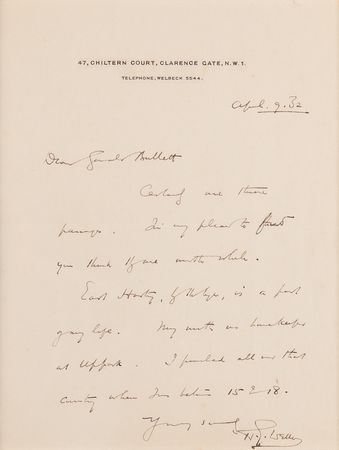 47, CHILTERN COURT, CLARENCE GATE, N.W.1.
TELEPHONE, WELBECK 5544.
April. 9. 32
Dear Gerald Bullett
Certainly use those
passages. I'm very pleased to find
you think of me worth while.
East Harting, is a part
of my life. My mother was housekeeper
at Uppark. I prowled all over that
country when I was between 15 & 18.
Yours
H.G. Wells